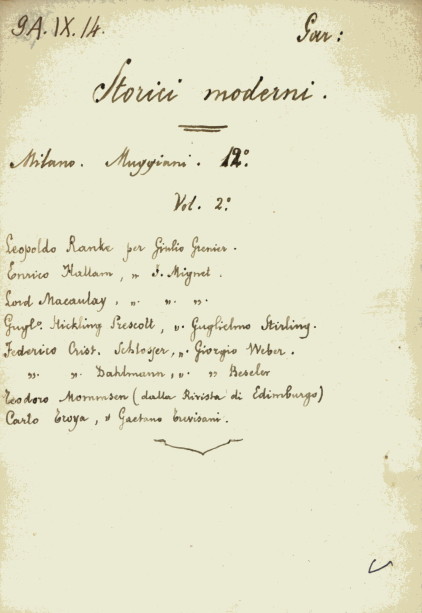 9A.IX.14.
Gar:
Storici moderni.
Milano. Muggiani. 12°.
Vol. 2°.
Leopoldo Ranke per Giulio Grenier.
Enrico Hallam, „ F. Mignet.
Lord Macaulay, „ „ „.
Gugl°. Hickling Prescott, „ Guglielmo Stirling.
Federico Crist. Schlosser, „ Giorgio Weber.
„. „. Dahlmann, „. „ Beseler
Teodoro Mommsen (dalla Rivista di Edimburgo)
Carlo Troya, „ Gaetano Trevisani.